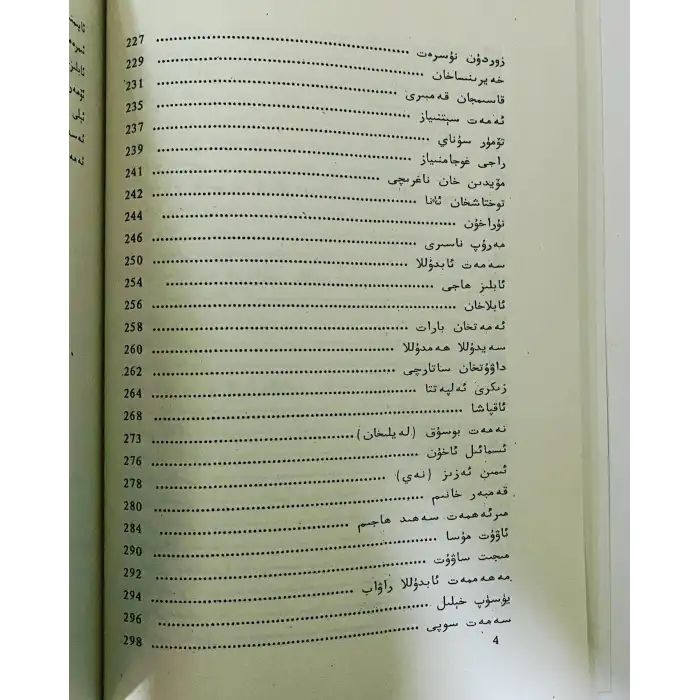 زوردۇن نۇسرەت 227
خەيرىنساخان 229
قاسىمجان قەمبىرى 231
ئەمەت سېتنىياز 235
تۆمۈر سۇناي 237
راجى غوجامنىياز 239
مۆيدىن خان ناغرىچى 241
توختاشخان ئانا 242
نۇراخۇن 244
مەرۇپ ناسىرى 246
سەمەت ئابدۇللا 250
ئابلىز ھاجى 254
ئابلاخان 256
ئەمەتخان بارات 258
سەيدۇللا ھەمدۇللا 260
داۋۇتخان ساتارچى 262
زىكرى ئەلپەتتا 264
ئاقپاشا 268
نەمەت بوسۇق (لەيلىخان) 273
ئىسمائىل ئاخۇن 276
ئىمىن ئەزىز (نەي) 278
قەمبەر خانىم 280
مىرئەھمەت سەھىد ھاجىم 284
ئاۋۇت مۇسا 290
مىجىت ساۋۇت 292
مەھەممەت ئابدۇللا راۋاب 294
يۈسۈپ خېلىل 296
سەمەت سوپى 298
4